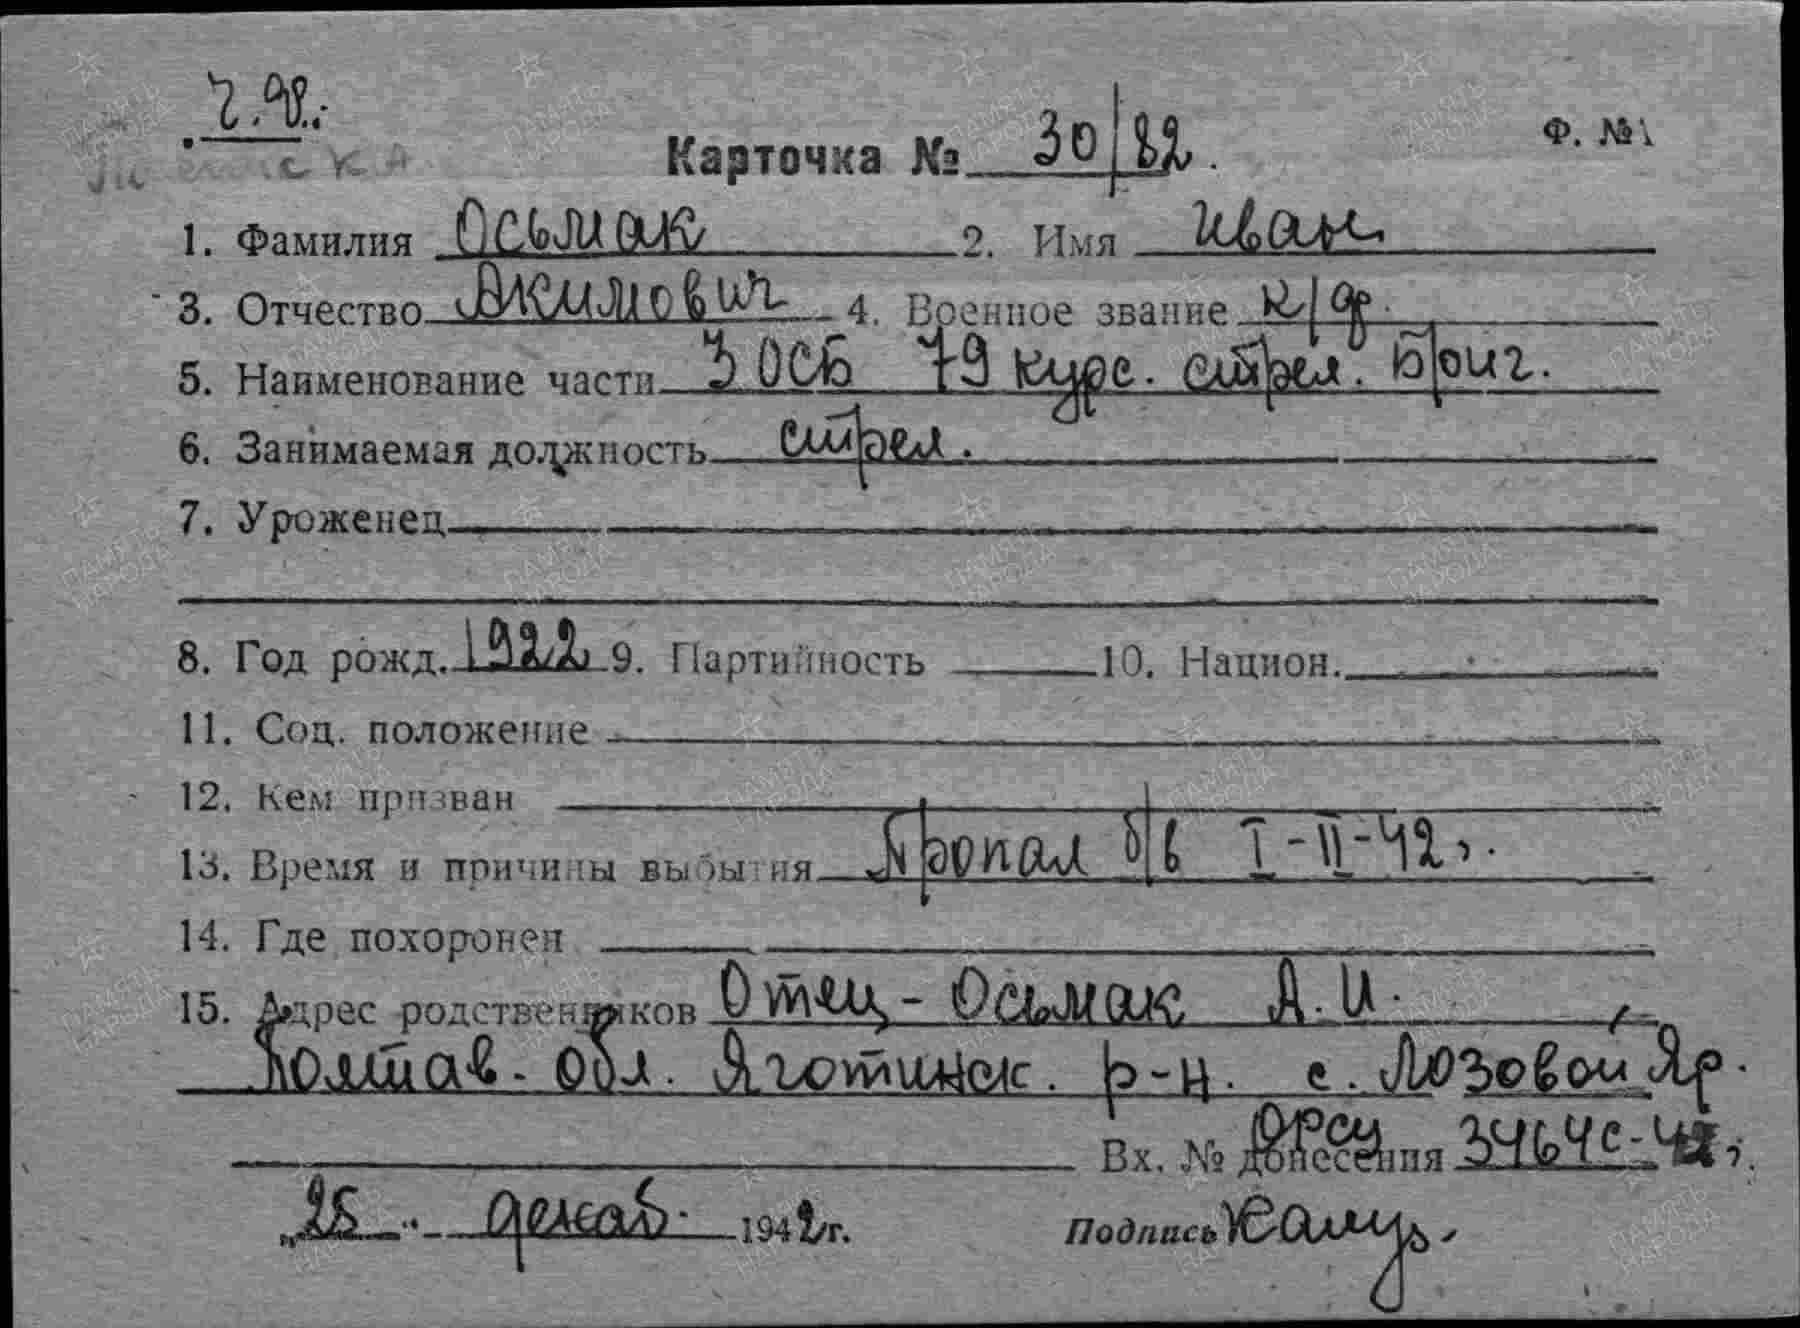 Карточка № 30/82.
Ф. №1
1. Фамилия Осьмак 2. Имя Иван
3. Отчество Акимович 4. Военное звание к/др.
5. Наименование части 3 ОСБ 79 курс. стрел. Бриг.
6. Занимаемая должность стрел.
7. Уроженец
8. Год рожд. 1922 9. Партийность 10. Национ.
11. Соц. положение
12. Кем призван
13. Время и причины выбытия Пропал б/в I-II-42г.
14. Где похоронен
15. Адрес родственников Отец - Осьмак А. И.,
Полтав. обл. Яготинск. р-н. с. Лозовой Яр.
Вх. № донесения 3464с-42г.
"25" декаб. 1942 г.
Подпись